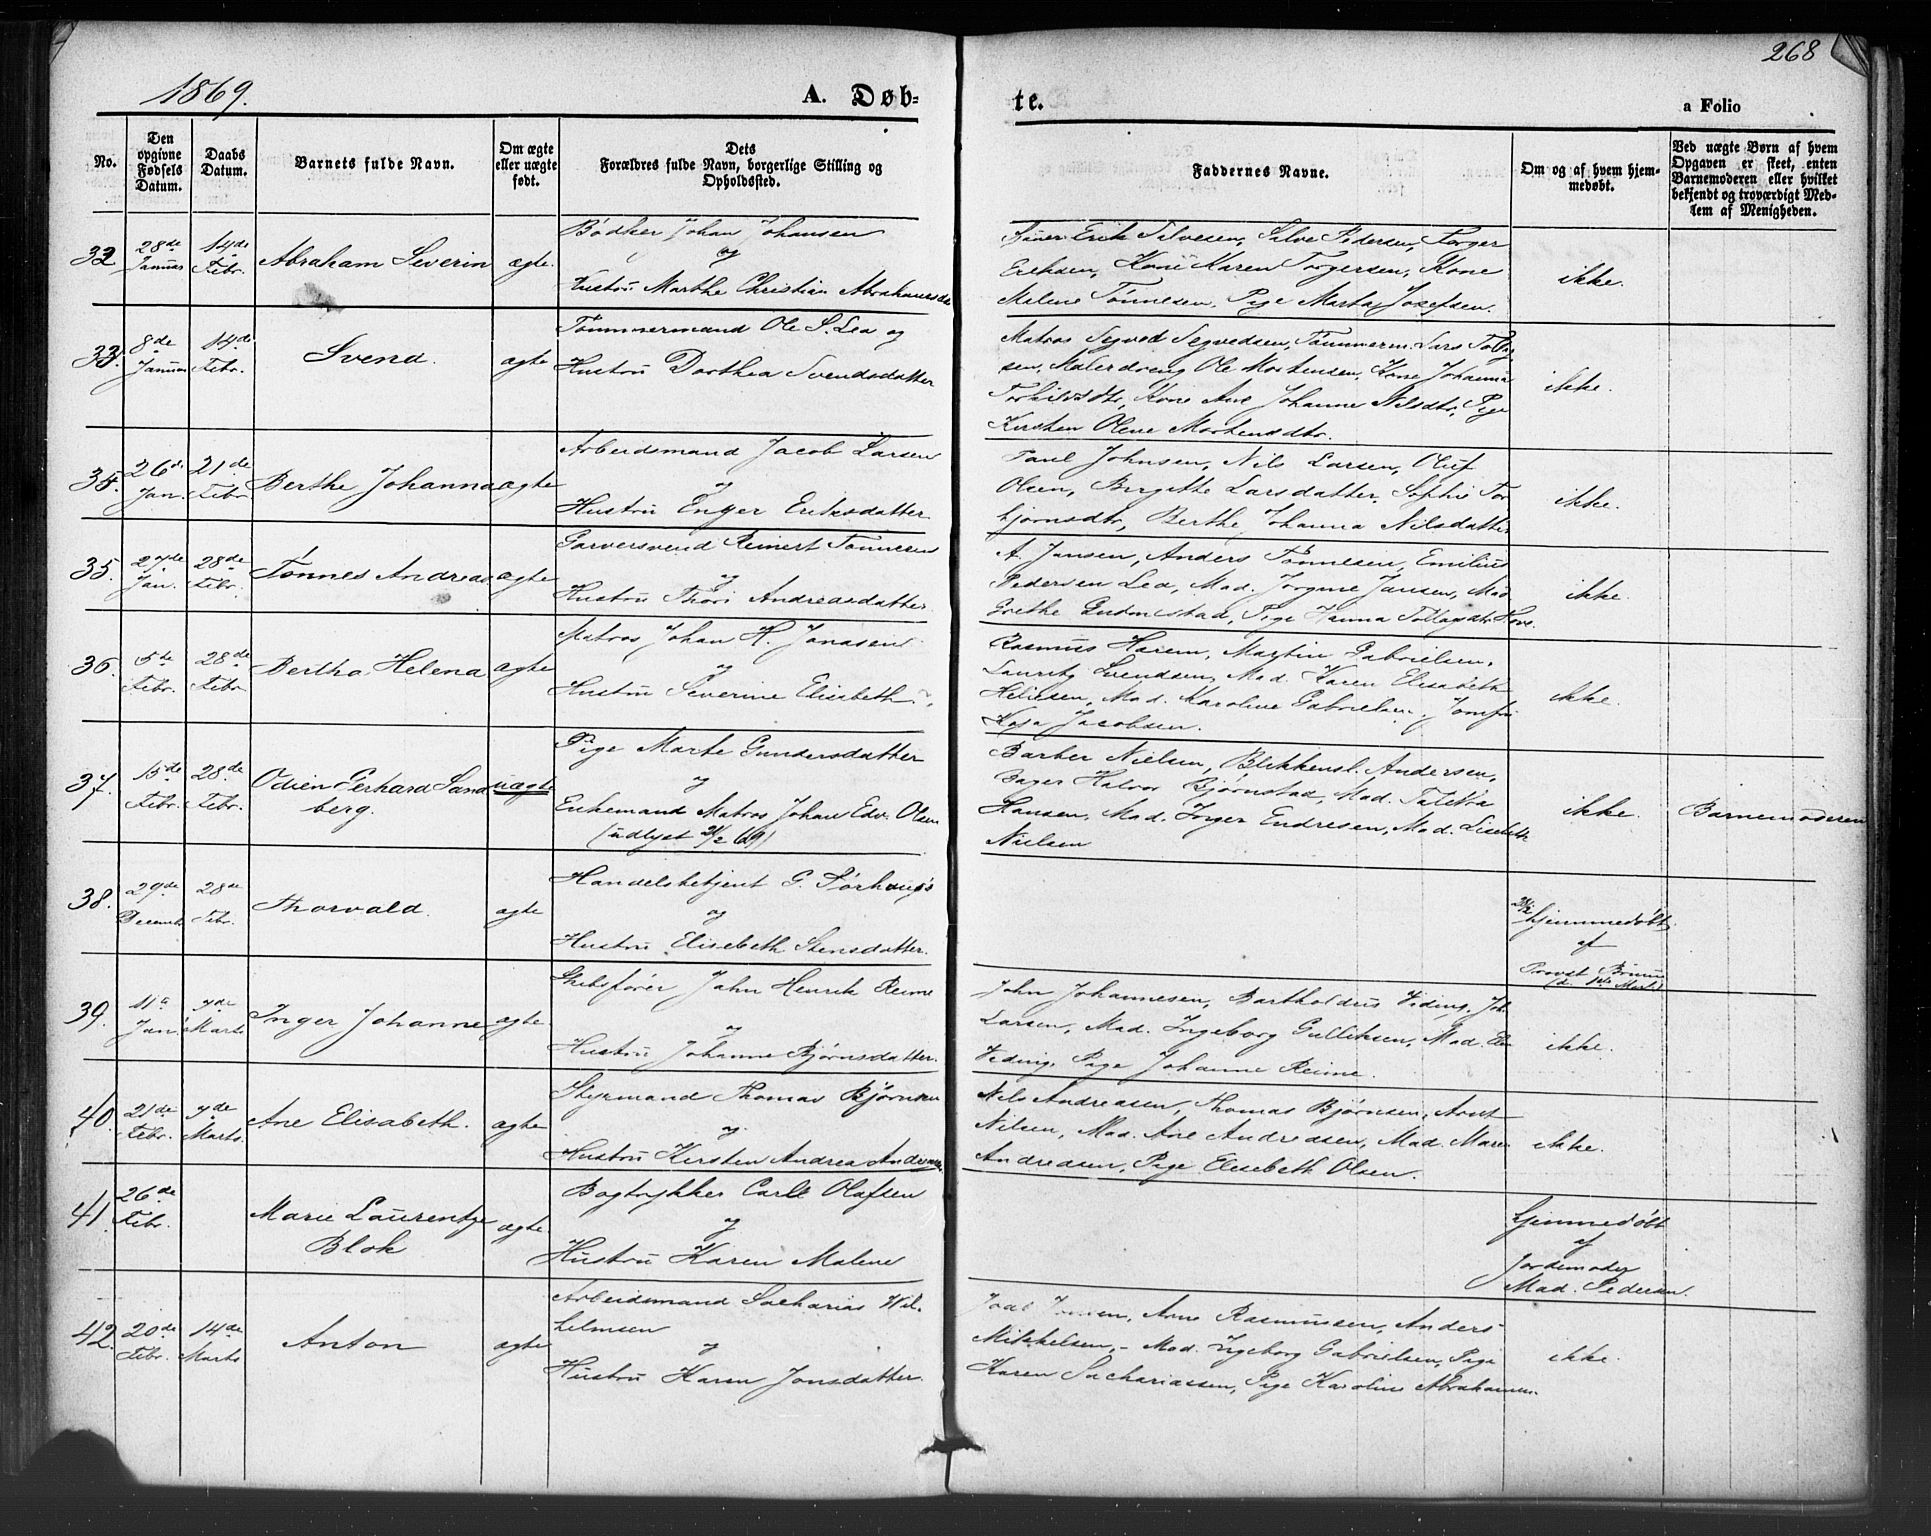 268
1869.
A. Døb-
te.
a Folio
No.
Den
opgivne
Fødsels
Datum.
Daabs
Datum.
Barnets fulde Navn.
Om ægte
eller uægte
født.
Dets
Forældres fulde Navn, borgerlige Stilling og
Opholdssted.
Faddernes Navne.
Om og af hvem hjem-
medøbt.
Ved uægte Børn af hvem
Opgaven er skeet, enten
Barnemoderen eller hvilket
bekjendt og troværdigt Med-
lem af Menigheden.
32
28de
Januar
14de
Febr.
Abraham Severin
ægte.
Bødker Johan Johansen
og
Hustru Marthe Christian Abrahamsdr
Erik Salvesen, Salve Pedersen, Torger
Eriksen, Kone Karen Torgersen, Kone
Malene Tønnesen, Pige Martha Josefsen.
ikke.
33.
8de
Januar
14de
Febr.
Svend.
ægte
Tømmermand Ole S. Lea og
Hustru Dorthea Svendsdatter
Matros Segvod Segvodsen, Tømmerm. Lars Tollag
sen, Malerdreng Ole Mortensen, Kone Johanna
Torkildsdtr, Kone Ane Johanne Nilsdtr, Pige
Kirsten Olene Mortensdtr.
ikke.
34.
26de
Jan.
21de
Febr
Berthe Johanna
ægte
Arbeidsmand Jacob Larsen
og
Hustru Enger Eriksdatter
Paul Johnsen, Nils Larsen, Oluf
Olsen, Birgithe Larsdatter, Sophie Tor
bjørnsdtr, Berthe Johanna Nilsdatter
ikke.
35.
27de
Jan.
28de
Febr.
Tønnes Andreas
ægte
Garversvend Reinert Tønnesen
og
Hustru Thori Andreasdatter
A. Jansen, Anders Tønnesen, Emilius
Pedersen Lea, Mad. Jørgine Jansen, Mad
Grethe Gudmestad, Pige Hanna Tollagsdtr
ikke.
36.
5te
Febr.
28de
Febr
Bertha Helena
ægte
Matros Johan H. Jonasen
og
Hustru Severine Elisabeth
Rasmus Harem, Martin Gabrielsen,
Lauritz Svendsen, Mad. Karen Elisabeth
Heliesen, Mad. Karoline Gabrielsen, Jomfru
Kaja Jacobsen.
ikke.
37.
15de
Febr.
28de
Febr.
Odien Gerhard Sand
berg.
uægte
Pige Marte Gundersdatter
og
Enkemand Matros Johan Edv. Olsen
(udlyst 21/2 69)
Barber Nielsen, Blikkensl. Andersen,
Bager Halvor Bjørnstad, Mad. Taletta
Hansen, Mad. Inger Endresen, Mad. Lisebeth
Nielsen
ikke.
Barnemoderen
38.
29de
December
28de
Febr.
Thorvald.
ægte
Handelsbetjent G. Tørhaug
og
Hustru Elisebeth Stensdatter.
hjemmedøbt
af
Provst Bruun
39.
11te
Jan.
7de
Marts
Inger Johanne
ægte
Skibsfører John Henrik Reime
og
Hustru Johanne Bjørnsdatter.
John Johannesen, Bartholdus Viding, Joh.
Larsen, Mad. Ingeborg Gulliksen, Mad.
Viding, Pige Johanne Reime.
ikke.
40.
21de
Febr.
7de
Marts.
Ane Elisabeth.
ægte
Styrmand Thomas Bjørnsen
og
Hustru Kirsten Andrea Andreasen
Nils Andreasen, Thomas Bjørnsen, Arnt
Nilsen, Mad. Ane Andreasen, Mad. Maren
Andreasen, Pige Elisebeth Olsen.
ikke.
41.
26de
Febr.
Marie Laurentze
Blok
ægte
Bogtrykker Carle Olafsen
og
Hustru Karen Malene
hjemmedøbt
af
Jordemoder
Mad. Pedersen.
42.
20de
Febr.
14de
Marts
Anton
ægte
Arbeidsmand Sacharias Wil-
helmsen
og
Hustru Karen Jonsdatter.
Arne Rasmussen, Anders
Mikkelsen, - Mad. Ingeborg Gabrielsen, Pige
Karen Sachariassen, Pige Karoline Abrahamsen
ikke.